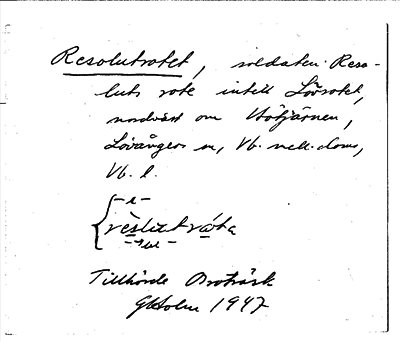 Resolutrotet, soldaten Reso-
luts rote intill Lövrotet,
nordväst om Stötjärnen,
Lövångers sn, Vb. nell. doms,
Vb. l.
-e-
reslutrota
Tillhörde Broträsk
GHolm 1947